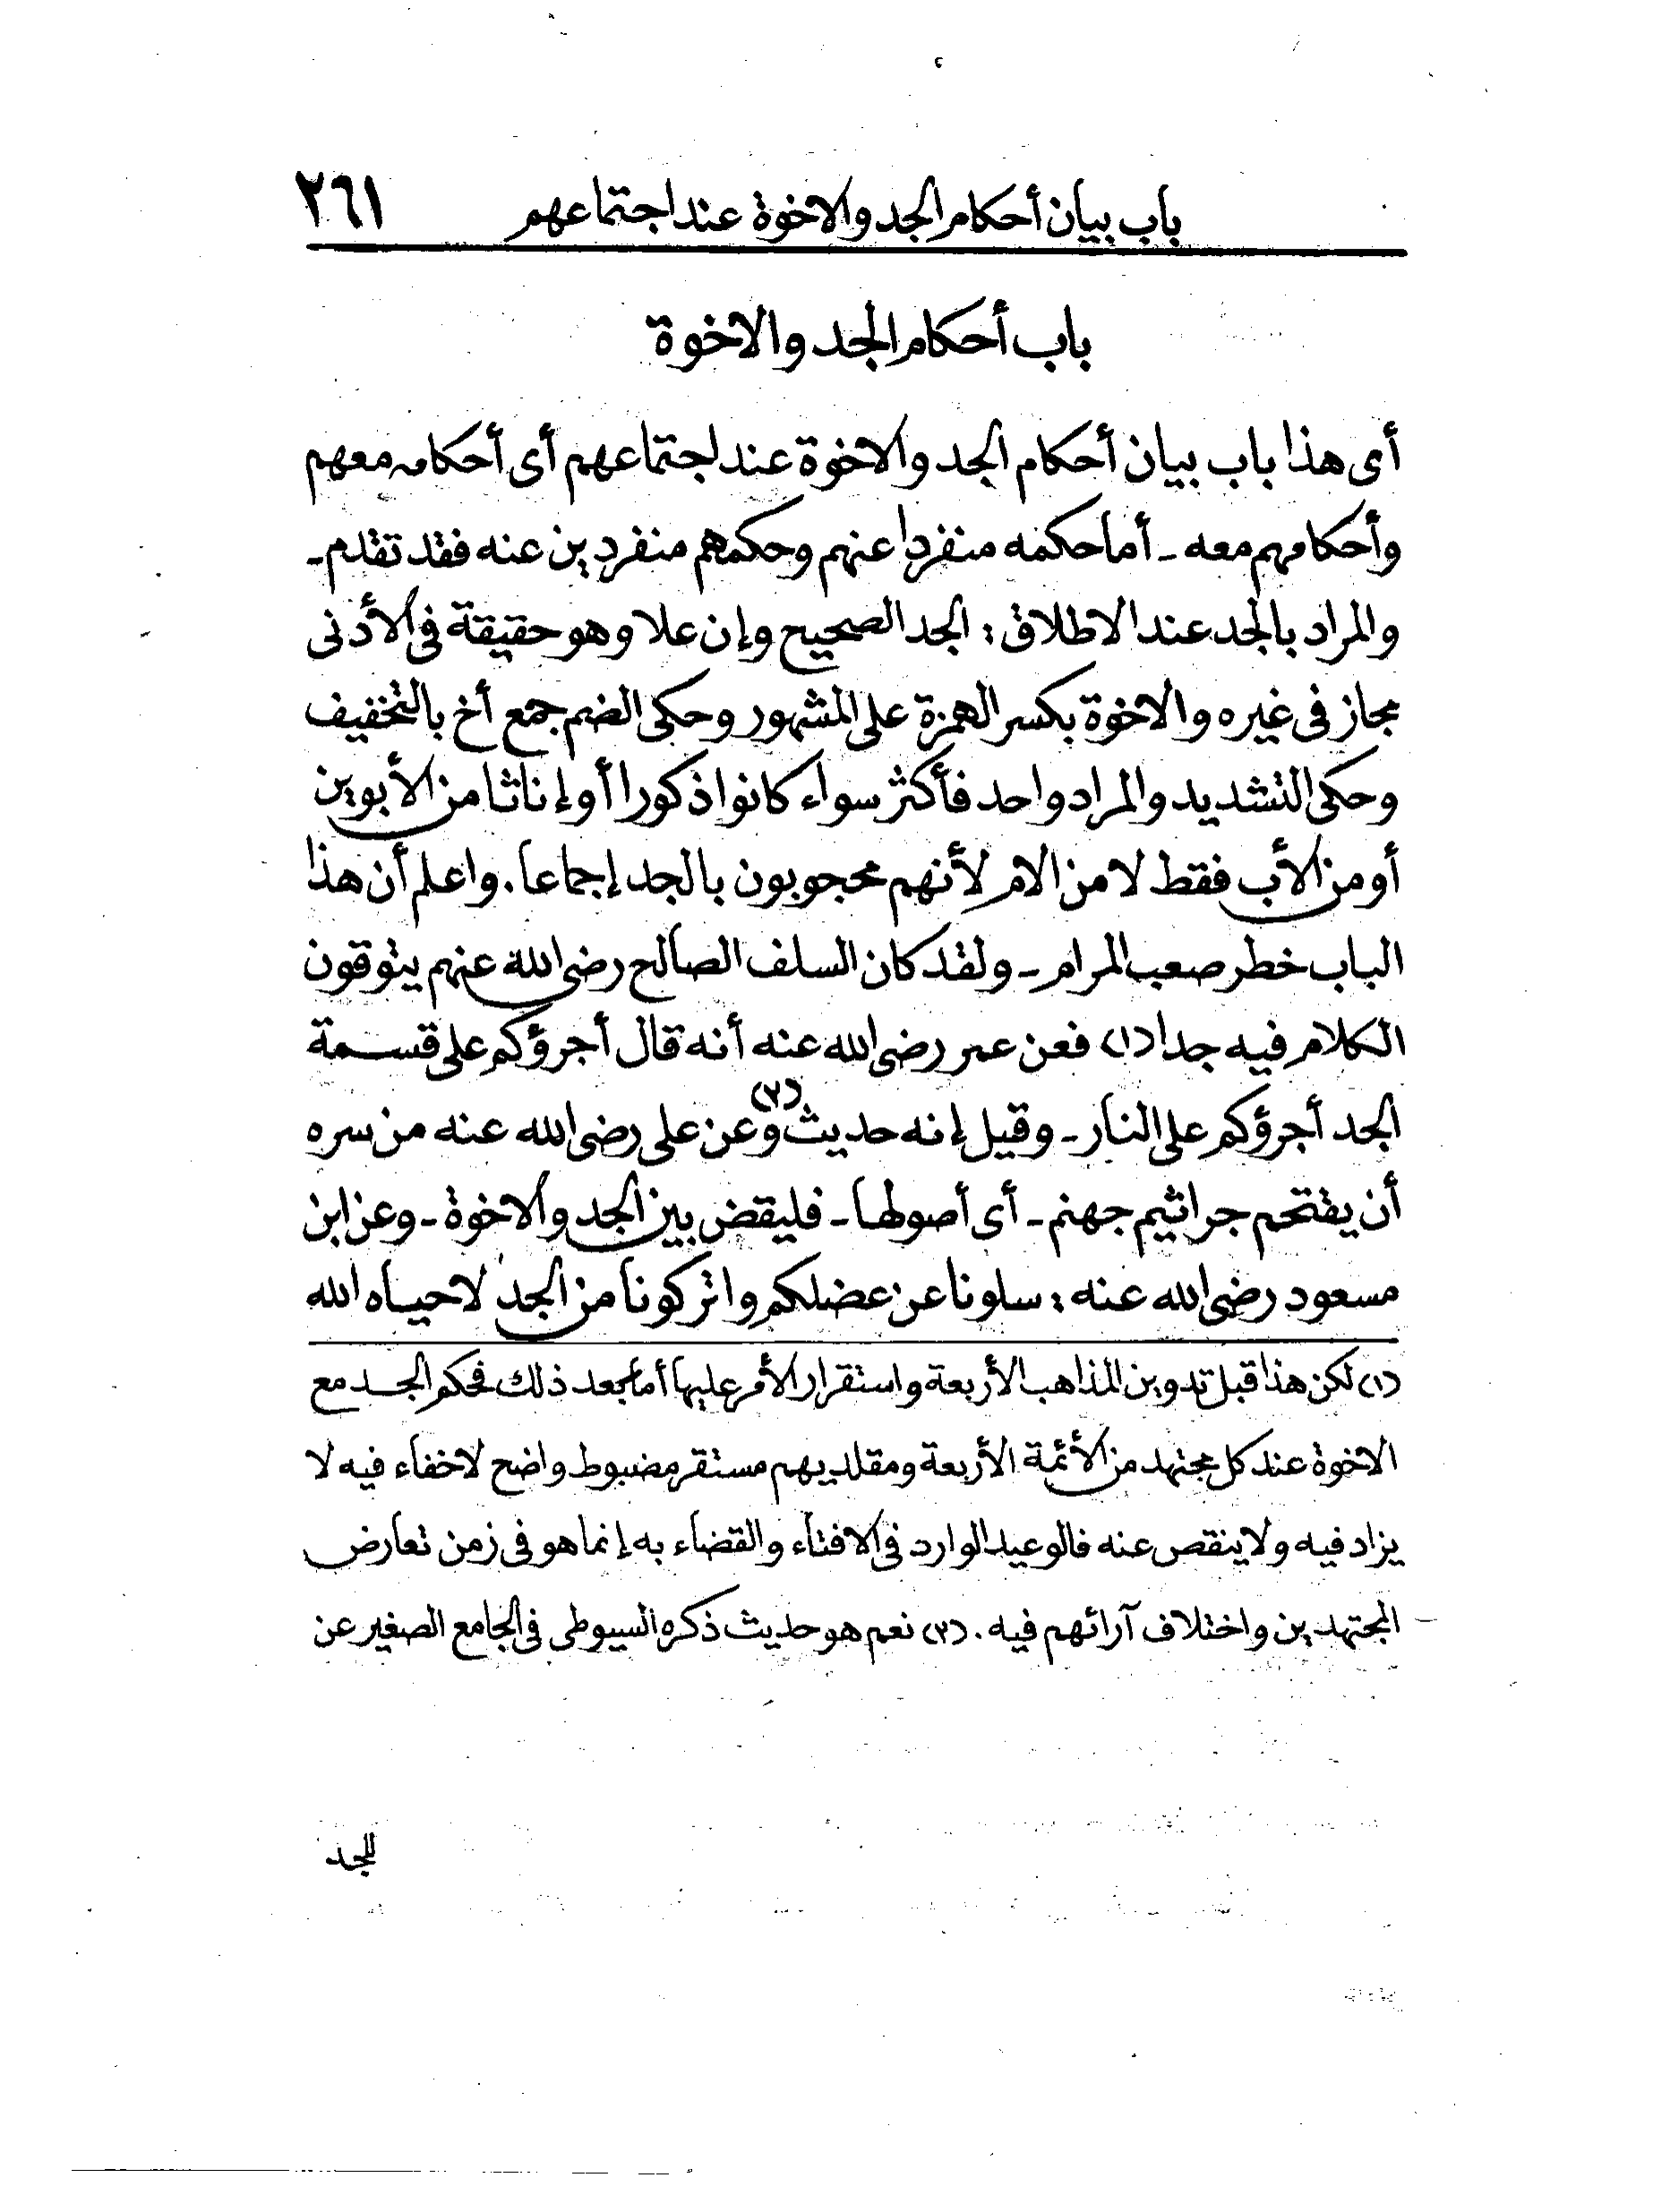 باب بيان أحكام الجد والاخوة عند اجتماعهم ٢٦١
باب أحكام الجد والاخوة
أى هذا باب بيان أحكام الجد والاخوة عند اجتماعهم أى أحكامه معهم
وأحكامهم معه - أما حكمه منفردا عنهم وحكمهم منفردين عنه فقد تقدم -
والمراد بالجد عند الاطلاق : الجد الصحيح وإن علا وهو حقيقة فى الأدنى
مجاز فى غيره والاخوة بكسر الهمزة على المشهور وحكى الضم جمع أخ بالتخفيف
وحكى التشديد والمراد واحد فأكثر سواء كانوا ذكورا أو إناثا من الأبوين
أو من الأب فقط لا من الام لأنهم محجوبون بالجد إجماعا . واعلم أن هذا
الباب خطر صعب المرام - ولقد كان السلف الصالح رضى الله عنهم يتوقون
الكلام فيه جدا (١) فعن عمر رضى الله عنه أنه قال أجرؤكم على قسمة
الجد أجرؤكم على النار - وقيل إنه حديث (٢) وعن على رضى الله عنه من سره
أن يقتحم جراثيم جهنم - أى أصولها - فليقض بين الجد والاخوة - وعن ابن
مسعود رضى الله عنه : سلونا عن عضلكم واتركونا من الجد لا حياه الله
(١) لكن هذا قبل تدوين المذاهب الأربعة واستقرار الأمر عليها أما بعد ذلك فحكم الجد مع
الاخوة عند كل مجتهد من الأئمة الأربعة ومقلديهم مستقر مضبوط واضح لا خفاء فيه لا
يزاد فيه ولا ينقص عنه فالوعيد الوارد فى الافتاء والقضاء به إنما هو فى زمن تعارض
المجتهدين واختلاف آرائهم فيه . (٢) نعم هو حديث ذكره السيوطى فى الجامع الصغير عن
للجد